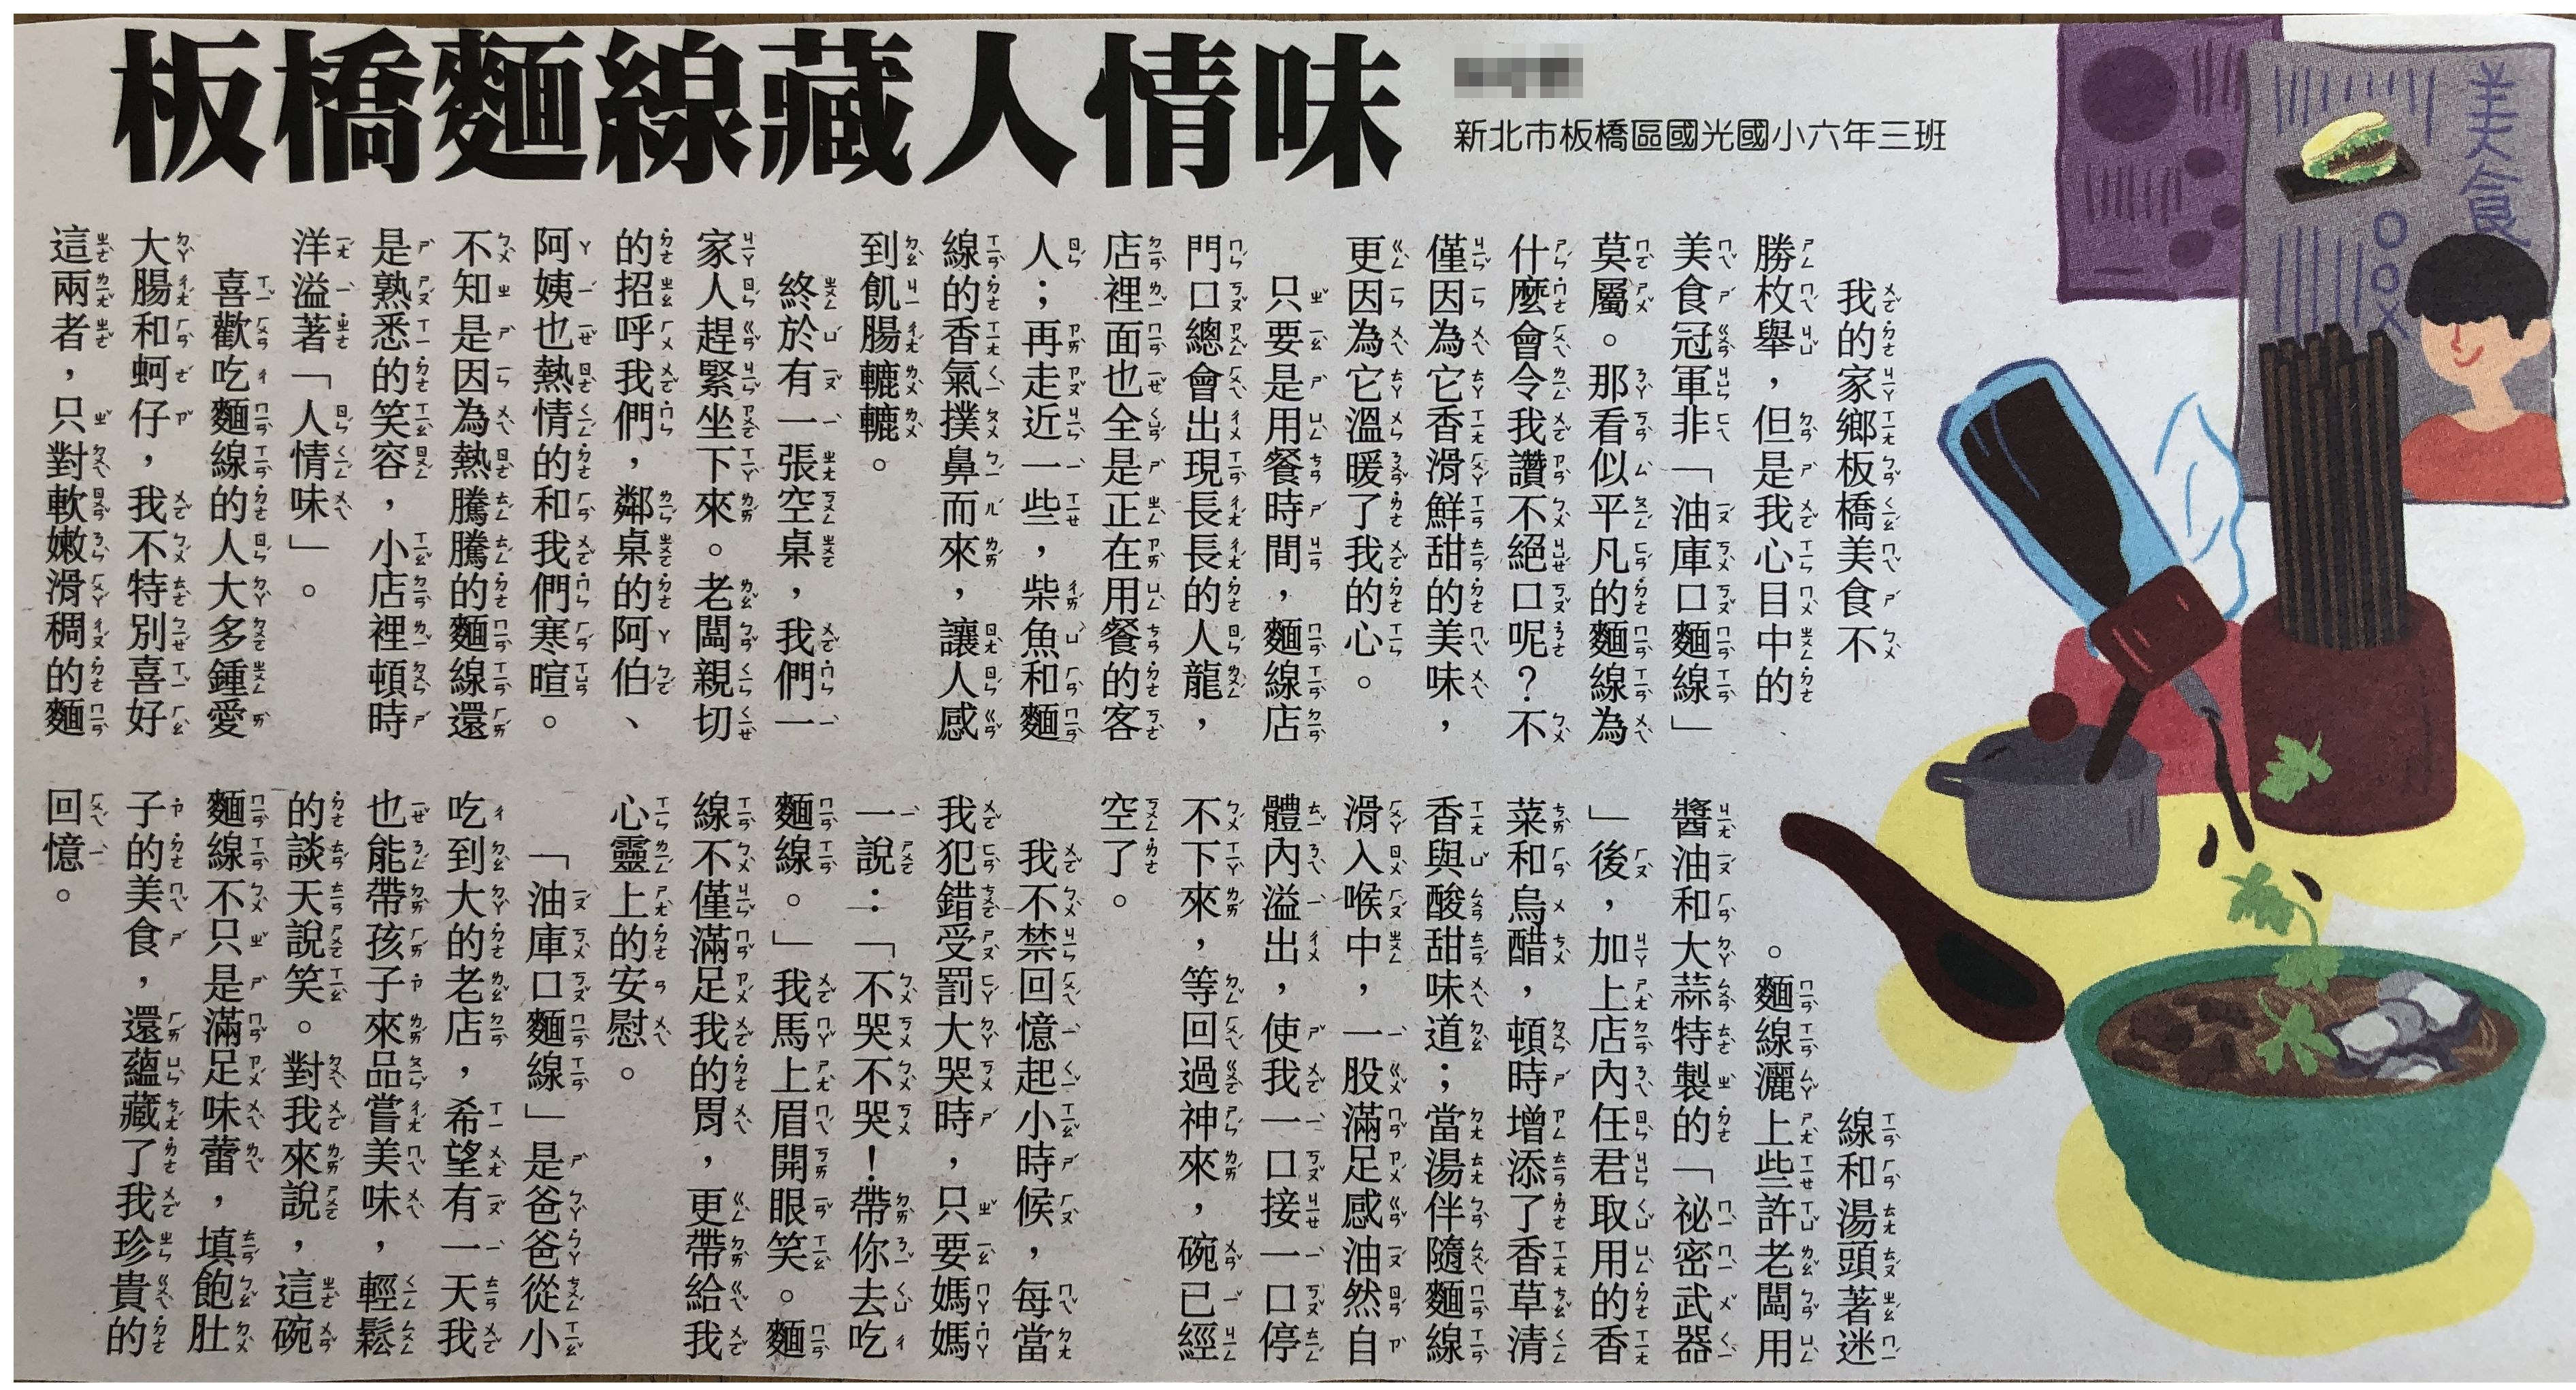 板橋麵線藏人情味
新北市板橋區國光國小六年三班
美食
我的家鄉板橋美食不
勝枚舉，但是我心目中的
美食冠軍非「油庫口麵線」
莫屬。那看似平凡的麵線為
什麼會令我讚不絕口呢？不
僅因為它香滑鮮甜的美味，
更因為它溫暖了我的心。
只要是用餐時間，麵線店
門口總會出現長長的人龍，
店裡面也全是正在用餐的客
人；再走近一些，柴魚和麵
線的香氣撲鼻而來，讓人感
到飢腸轆轆。
終於有一張空桌，我們一
家人趕緊坐下來。老闆親切
的招呼我們，鄰桌的阿伯、
阿姨也熱情的和我們寒暄。
不知是因為熱騰騰的麵線還
是熟悉的笑容，小店裡頓時
洋溢著「人情味」。
喜歡吃麵線的人大多鍾愛
大腸和蚵仔，我不特別喜好
這兩者，只對軟嫩滑稠的麵
線和湯頭著迷
。麵線灑上些許老闆用
醬油和大蒜特製的「祕密武器
」後，加上店內任君取用的香
菜和烏醋，頓時增添了香草清
香與酸甜味道；當湯伴隨麵線
滑入喉中，一股滿足感油然自
體內溢出，使我一口接一口停
不下來，等回過神來，碗已經
空了。
我不禁回憶起小時候，每當
我犯錯受罰大哭時，只要媽媽
一說：「不哭不哭！帶你去吃
麵線。」我馬上眉開眼笑。麵
線不僅滿足我的胃，更帶給我
心靈上的安慰。
「油庫口麵線」是爸爸從小
吃到大的老店，希望有一天我
也能帶孩子來品嘗美味，輕鬆
的談天說笑。對我來說，這碗
麵線不只是滿足味蕾，填飽肚
子的美食，還蘊藏了我珍貴的
回憶。